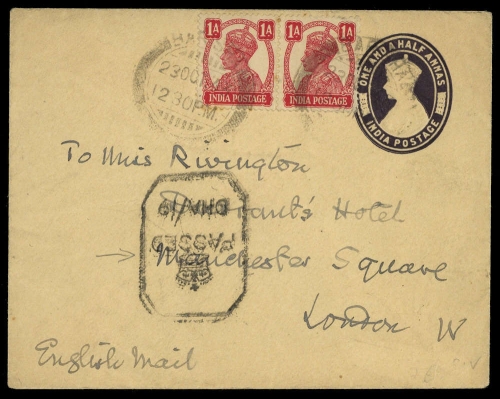 1A 1A
INDIA POSTAGE INDIA POSTAGE
ONE AND A HALF ANNAS
INDIA POSTAGE
12.30P.M.
To Miss Rivington
Durrant's Hotel
→ Manchester Square
London W
English Mail
PASSED
DHA/19